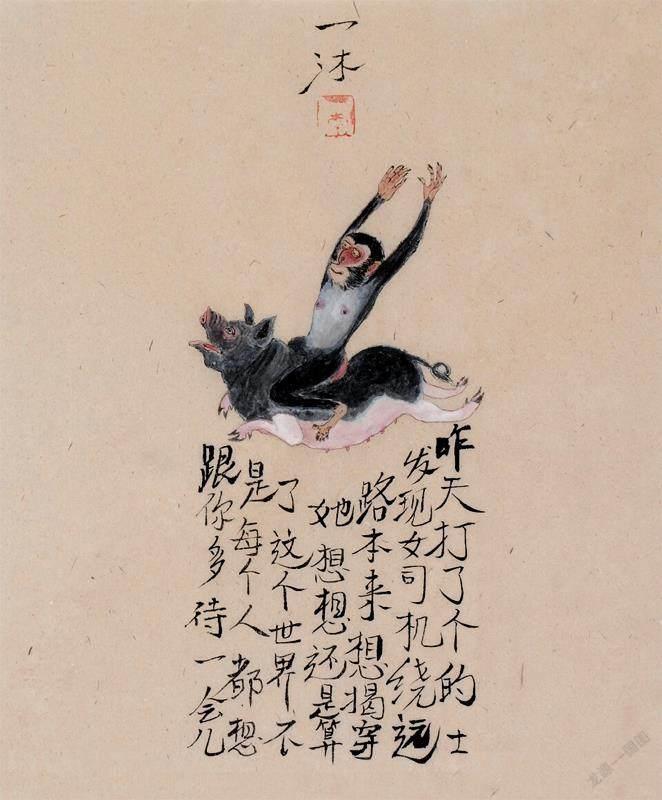 一沐
昨天打了个的士
发现女司机绕远
路本来想揭穿
她想想还是算
了这个世界不
是每个人都想
跟你多待一会儿